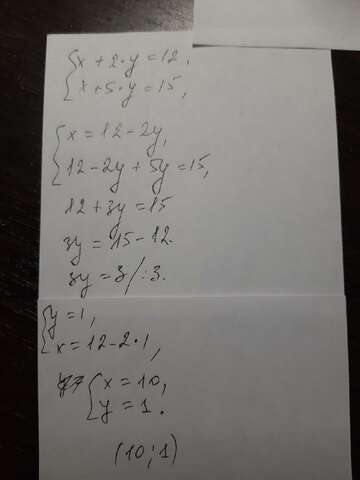 x + 2·y = 12,
x + 5·y = 15,
x = 12 - 2y,
12 - 2y + 5y = 15,
12 + 3y = 15
3y = 15 - 12.
3y = 3 / : 3.
y = 1,
x = 12 - 2·1,
x = 10,
y = 1.
(10; 1)